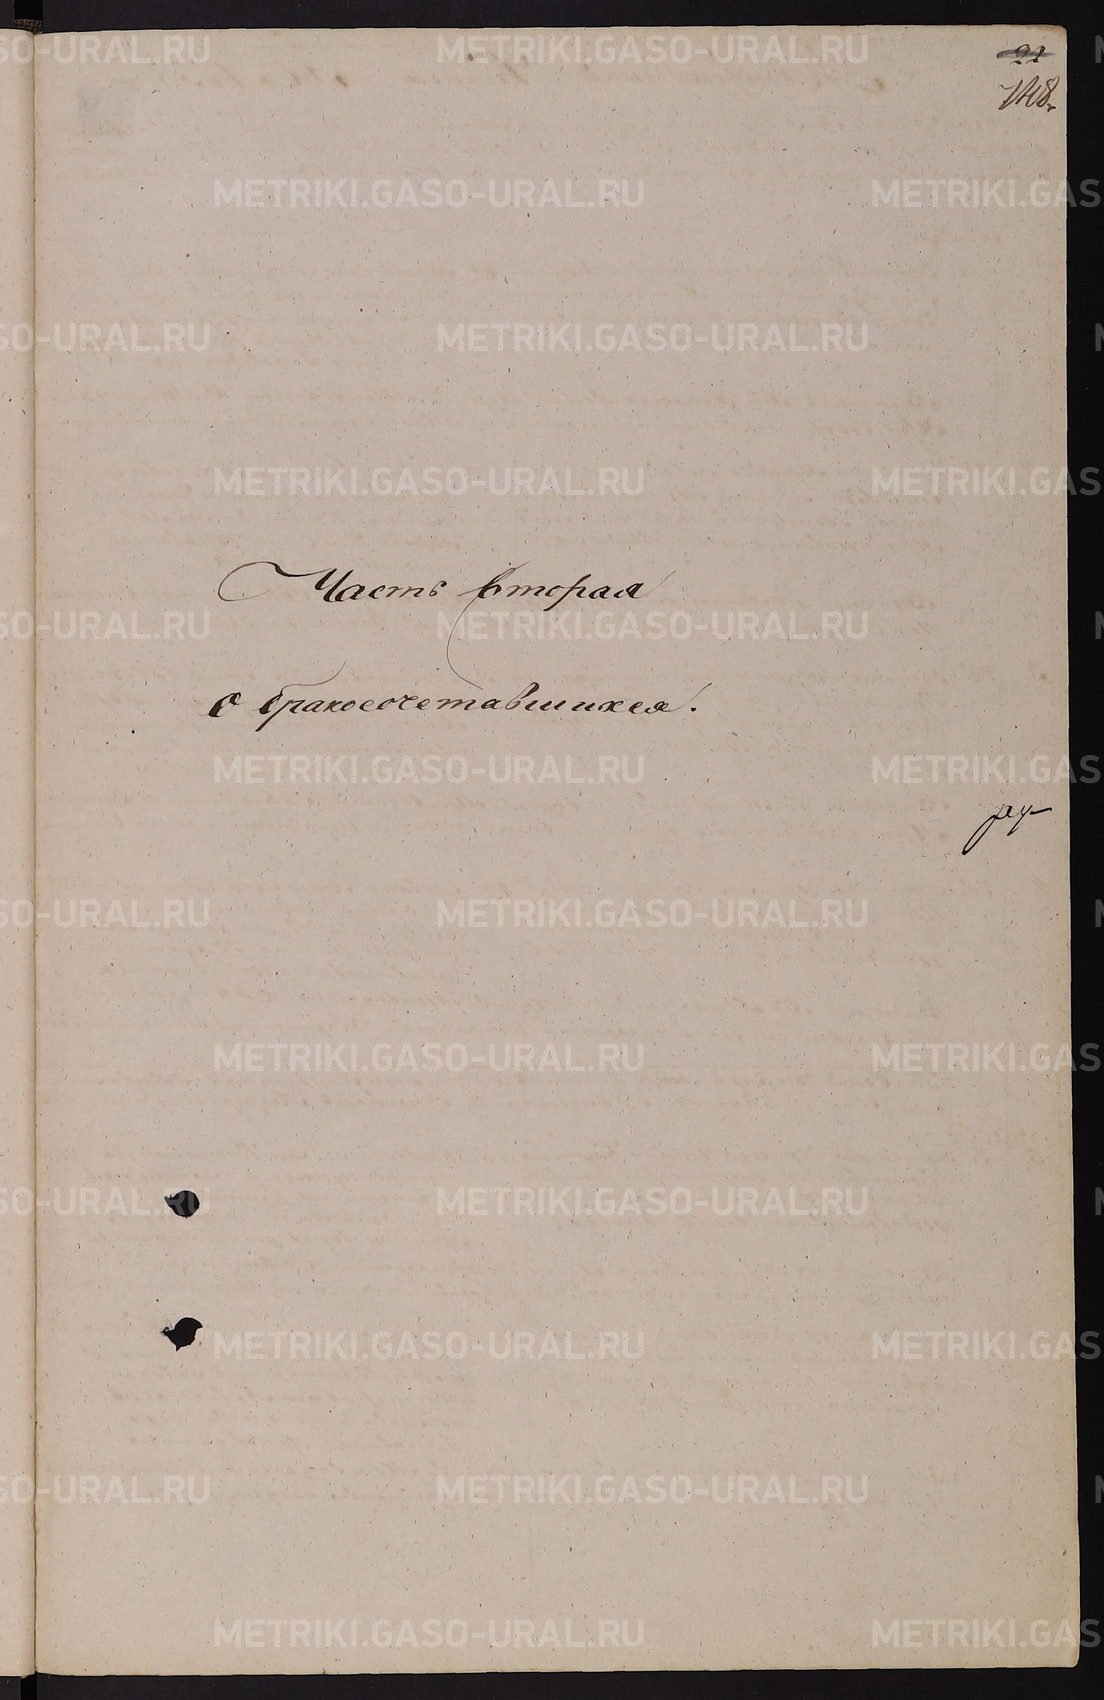 21
148.
Часть вторая
о бракосочетавшихся.
METRIKI.GASO-URAL.RU